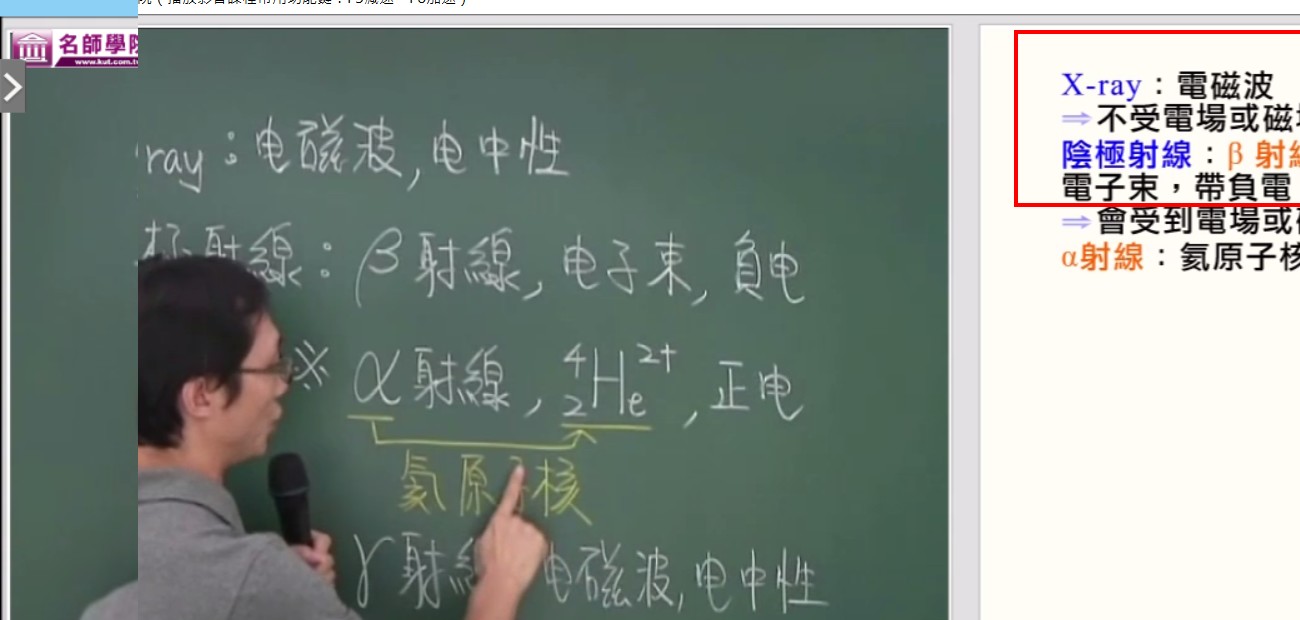 名師學院
www.kut.com.tw
ray：电磁波,电中性
极射線：β射線,电子束,負电
※ α射線, ⁴₂He²⁺,正电
氦原子核
γ射線 电磁波,电中性
X-ray：電磁波
⇒不受電場或磁場
陰極射線：β 射線
電子束，帶負電
⇒會受到電場或磁
α射線：氦原子核